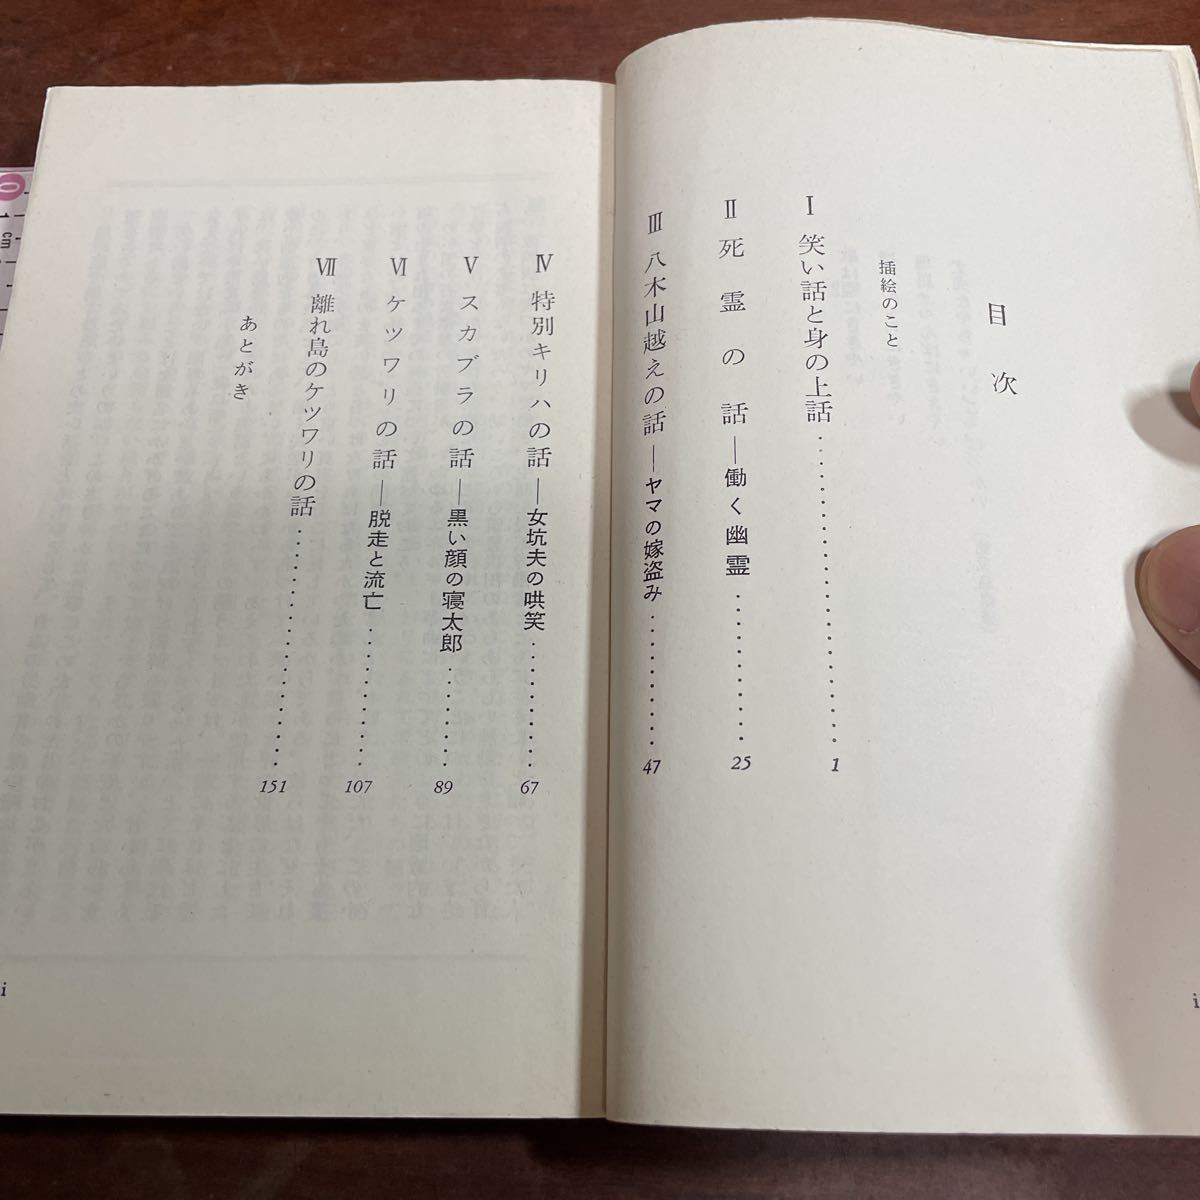 目次
插絵のこと
Ⅰ 笑い話と身の上話 1
Ⅱ 死霊の話―働く幽霊 25
Ⅲ 八木山越えの話―ヤマの嫁盗み 47
i
Ⅳ 特別キリハの話―女坑夫の哄笑 67
Ⅴ スカブラの話―黒い顔の寝太郎 89
Ⅵ ケツワリの話―脱走と流亡 107
Ⅶ 離れ島のケツワリの話 151
あとがき